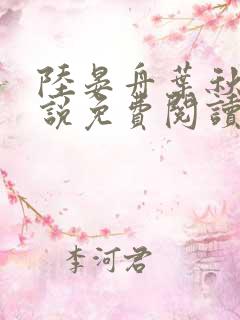 陸晏舟葉秋
說免費閱讀
李河君